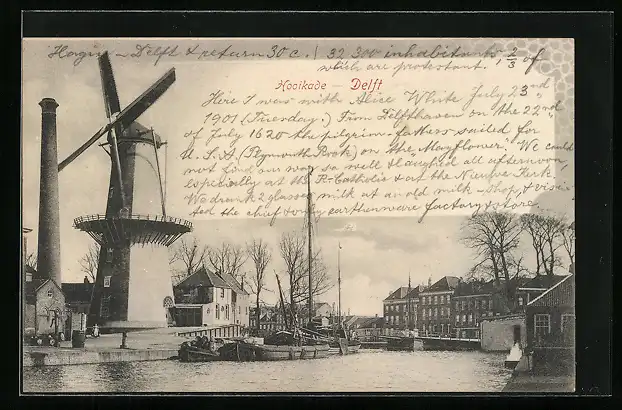 Hague - Delft & return 30 c. | 32 300 inhabitants, 2/3 of
which are protestant.
Hooikade - Delft
Here I was with Alice White July 23rd
1901 (Tuesday.) From Delfthaven on the 22nd
of July 1620 the pilgrim-fathers sailed for
U.S.A. (Plymouth Rock) on the "Mayflower". We could
not find our way so well & laughed all afternoon,
especially at the R. Catholic & at the Nieuwe Kerk.
We drank 2 glasses milk at an old milk-shop, & visi-
ted the chief & only earthenware factory & store.